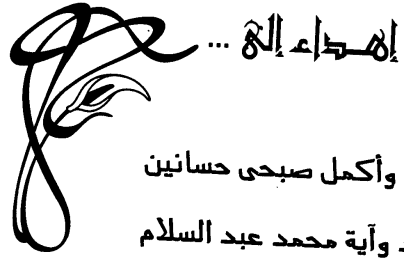 إهداء إلى ...
وأكمل صبحى حسانين
وآية محمد عبد السلام